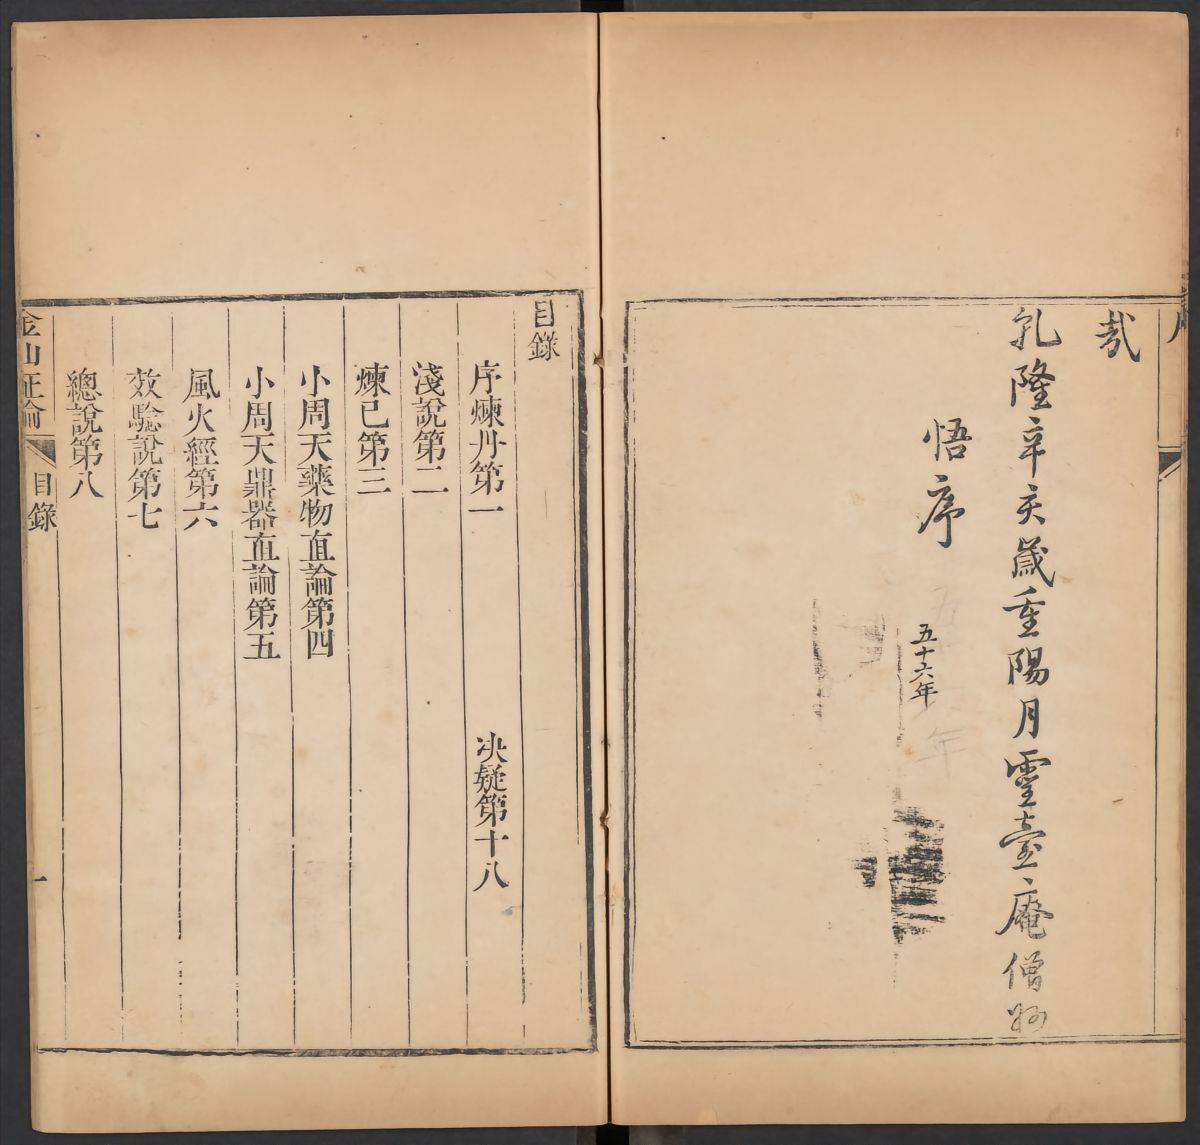 哉
乹隆辛亥歲重陽月靈臺庵僧妙
悟序
五十六年
目錄
序煉丹第一
决疑第十八
淺說第二
煉己第三
小周天藥物直論第四
小周天鼎器直論第五
風火經第六
效驗說第七
總說第八
金仙証論
目錄
一